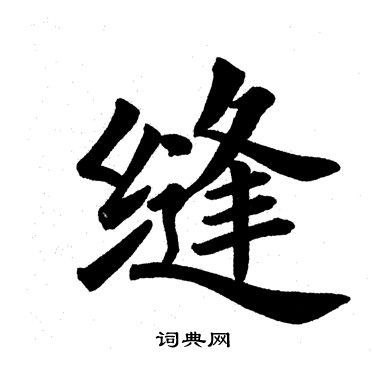 缝
词典网